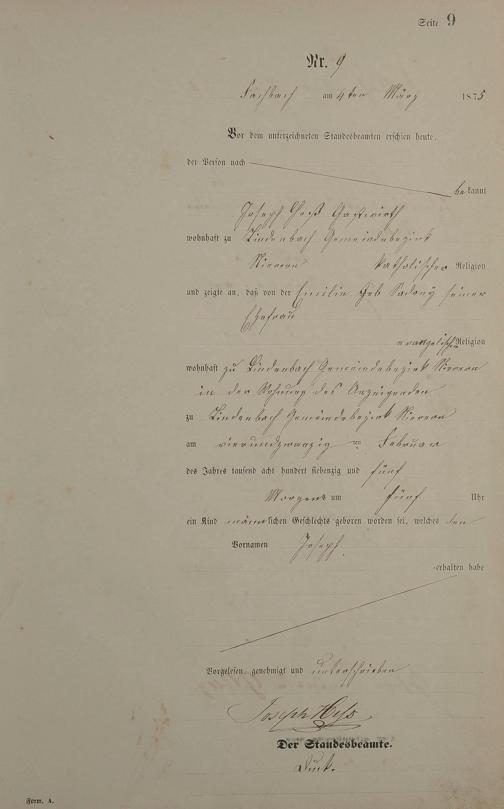 Seite 9
Nr. 9
Fachbach am 4ten März 1875
Vor dem unterzeichneten Standesbeamten erschien heute,
der Person nach
bekannt
Joseph Heß Gastwirth
wohnhaft zu Lindenbach Gemeindebezirk
Nievern katholischer Religion
und zeigte an, daß von der Emilie geb Sadony seiner
Ehefrau
evangelischer Religion
wohnhaft zu Lindenbach Gemeindebezirk Nievern
in der Wohnung des Anzeigenden
zu Lindenbach Gemeindebezirk Nievern
am vierundzwanzig ten Februar
des Jahres tausend acht hundert siebenzig und fünf
Morgens um fünf Uhr
ein Kind männlichen Geschlechts geboren worden sei, welches den
Vornamen Joseph
erhalten habe
Vorgelesen, genehmigt und unterschrieben
Joseph Heß
Der Standesbeamte.
Form. A.